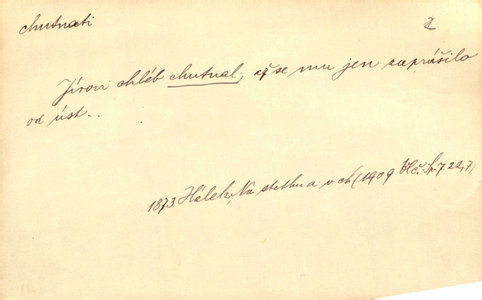 chutnati
2
Jírovi chléb chutnal, až se mu jen zaprášilo
od úst..
1873 Hálek, Na statku a v ch (1909 Vlč. Sp. 7. 22, 7)